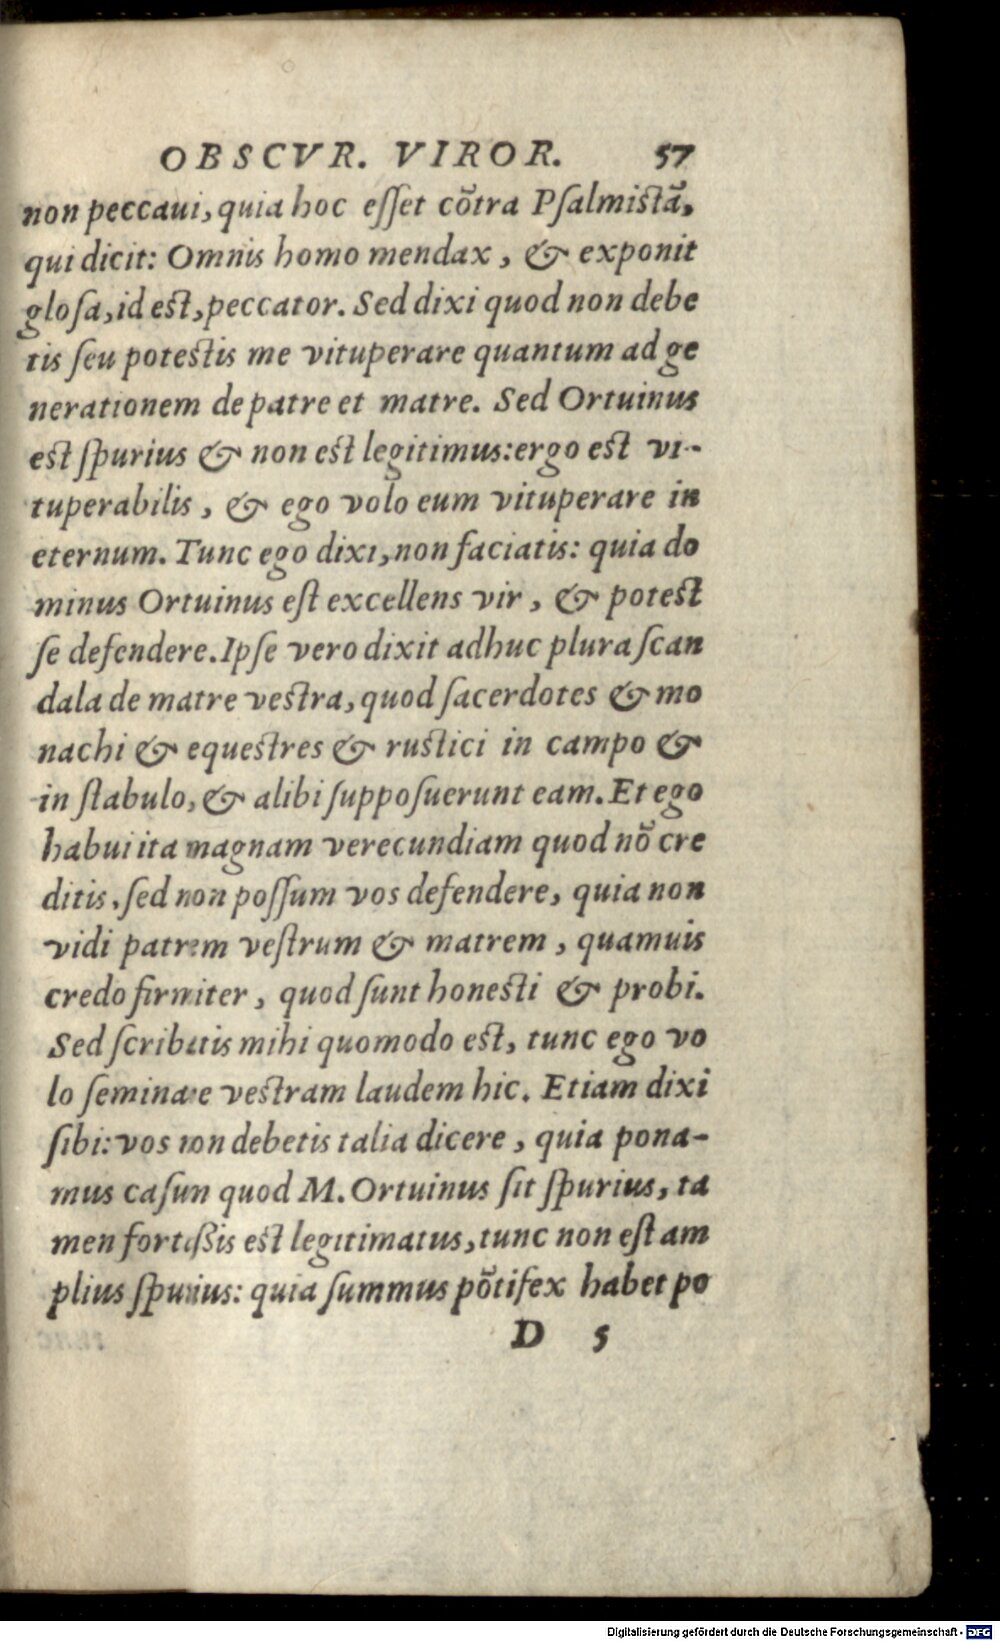 OBSCVR. VIROR. 57
non peccaui, quia hoc eſſet cõtra Pſalmistã,
qui dicit: Omnis homo mendax, & exponit
gloſa, id est, peccator. Sed dixi quod non debe
tis ſeu potestis me vituperare quantum ad ge
nerationem de patre et matre. Sed Ortuinus
est ſpurius & non est legitimus: ergo est vi-
tuperabilis, & ego volo eum vituperare in
eternum. Tunc ego dixi, non faciatis: quia do
minus Ortuinus eſt excellens vir, & potest
ſe defendere. Ipſe vero dixit adhuc plura ſcan
dala de matre vestra, quod ſacerdotes & mo
nachi & equestres & rustici in campo &
in ſtabulo, & alibi ſuppoſuerunt eam. Et ego
habui ita magnam verecundiam quod nõ cre
ditis. ſed non poſſum vos defendere, quia non
vidi patrem veſtrum & matrem, quamuis
credo firmiter, quod ſunt honesti & probi.
Sed ſcribatis mihi quomodo est, tunc ego vo
lo ſeminare vestram laudem hic. Etiam dixi
ſibi: vos non debetis talia dicere, quia pona-
mus caſun quod M. Ortuinus ſit ſpurius, ta
men fortaßis est legitimatus, tunc non eſt am
plius ſpurius: quia ſummus põtifex habet po
D 5
Digitalisierung gefördert durch die Deutsche Forschungsgemeinschaft - DFG